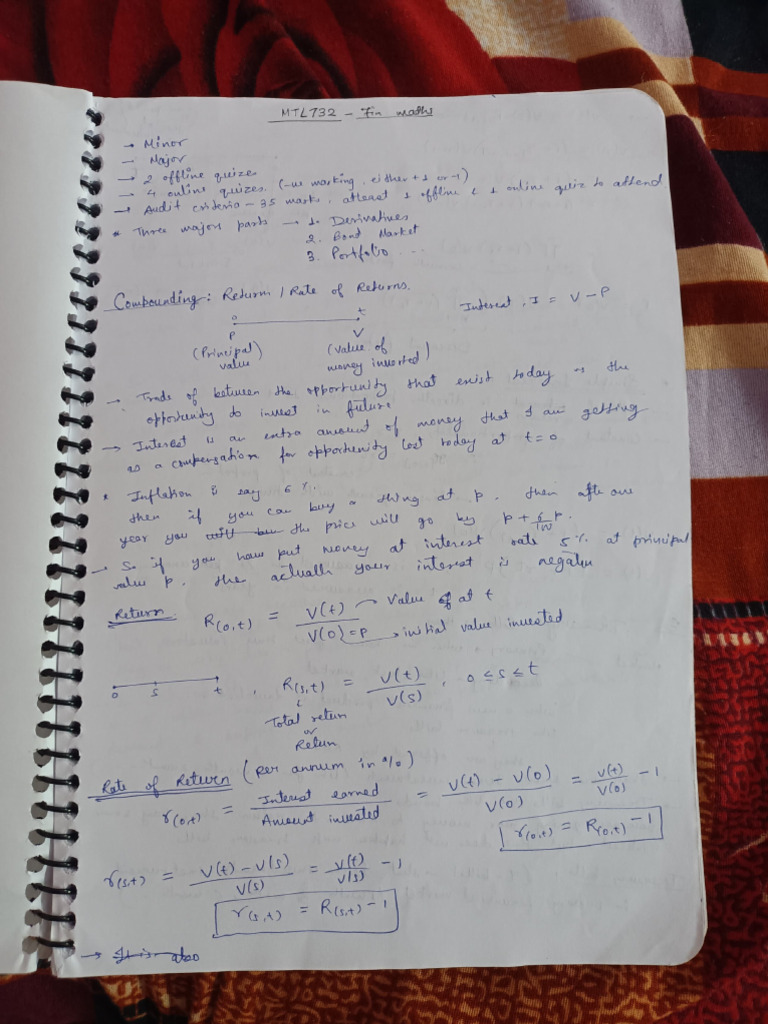 MTL732 - Fin maths
→ Minor
→ Major
→ 2 offline quizes
→ 4 online quizes. (-ve marking, either +1 or -1)
→ Audit criteria - 35 marks, atleast 1 offline & 1 online quiz to attend
* Three majors parts → 1. Derivatives
2. Bond Market
3. Portfolio ...
Compounding: Return / Rate of Returns.
0 t
P V
Interest, I = V - P
(Principal) (Value of
value money invested)
→ Trade of between the opportunity that exist today vs the
opportunity to invest in future
→ Interest is an extra amount of money that I am getting
as a compensation for opportunity lost today at t=0
* Inflation is say 6%.
then if you can buy a thing at P. then after one
year you the price will go by P + 6/100 P.
→ So if you have put money at interest rate 5% at principal
value P. the actuall your interest is negative
Return: R(0,t) = V(t)/V(0)=P → Value of at t
→ initial value invested
0 s t , R(s,t) = V(t)/V(s), 0 ≤ s ≤ t
Total return
or
Return
Rate of Return (per annum in %)
r(0,t) = Interest earned/Amount invested = V(t) - V(0)/V(0) = V(t)/V(0) - 1
r(0,t) = R(0,t) - 1
r(s,t) = V(t) - V(s)/V(s) = V(t)/V(s) - 1
r(s,t) = R(s,t) - 1
→ It is also